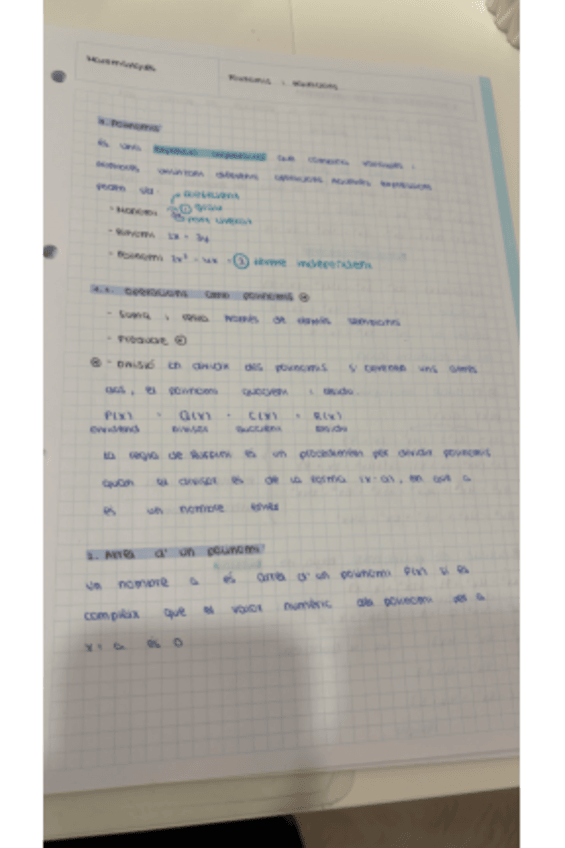 Matemàtiques
Polinomis i
1. Polinomis
És una expressió que variables i
diferents operacions. Aquestes expressions
poden ser: coeficient
- Monomi grau
part literal
- Binomi 2x - 3y
- Polinomi 2x² - 4x - ③ terme independent
1.1. Operacions amb polinomis
- Suma i resta només de termes semblants
- Producte
- Divisió En dividir dos polinomis s' obtenen uns altres
dos, el polinomi quocient i residu.
P(x) = Q(x) · C(x) + R(x)
dividend divisor quocient residu
La regla de Ruffini és un procediment per dividir polinomis
quan el divisor és de la forma (x-a), en què a
és un nombre enter
2. Arrel d' un polinomi
Un nombre a és arrel d' un polinomi P(x) si es
compleix que el valor numèric del polinomi per a
x = a és 0